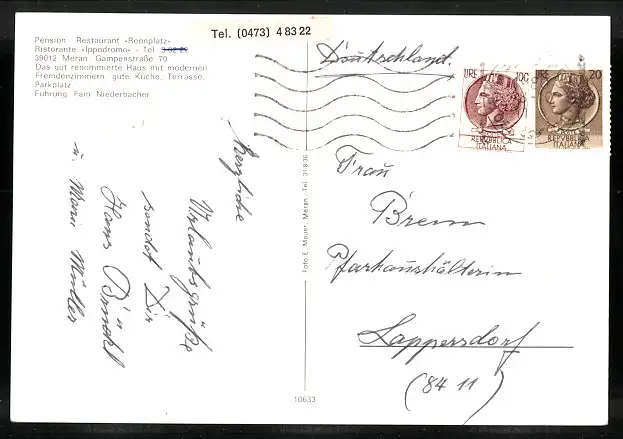 Tel. (0473) 4 83 22
Pension Restaurant »Rennplatz«
Ristorante »Ippodromo« - Tel
39012 Meran Gampenstraße 70
Das gut renommierte Haus mit modernen
Fremdenzimmern gute Küche, Terrasse,
Parkplatz
Führung Fam Niederbacher
Herzliche
Urlaubsgrüße
sendet Dir
Hans
u. Maria Müller
Foto E. Mauer, Meran, Tel. 31 8 36
10633
Deutschland.
LIRE 100
REPVBBLICA
ITALIANA
LIRE 20
REPVBBLICA
ITALIANA
Frau
Brem
Pfarhaushälterin
Lappersdorf
(84 11)